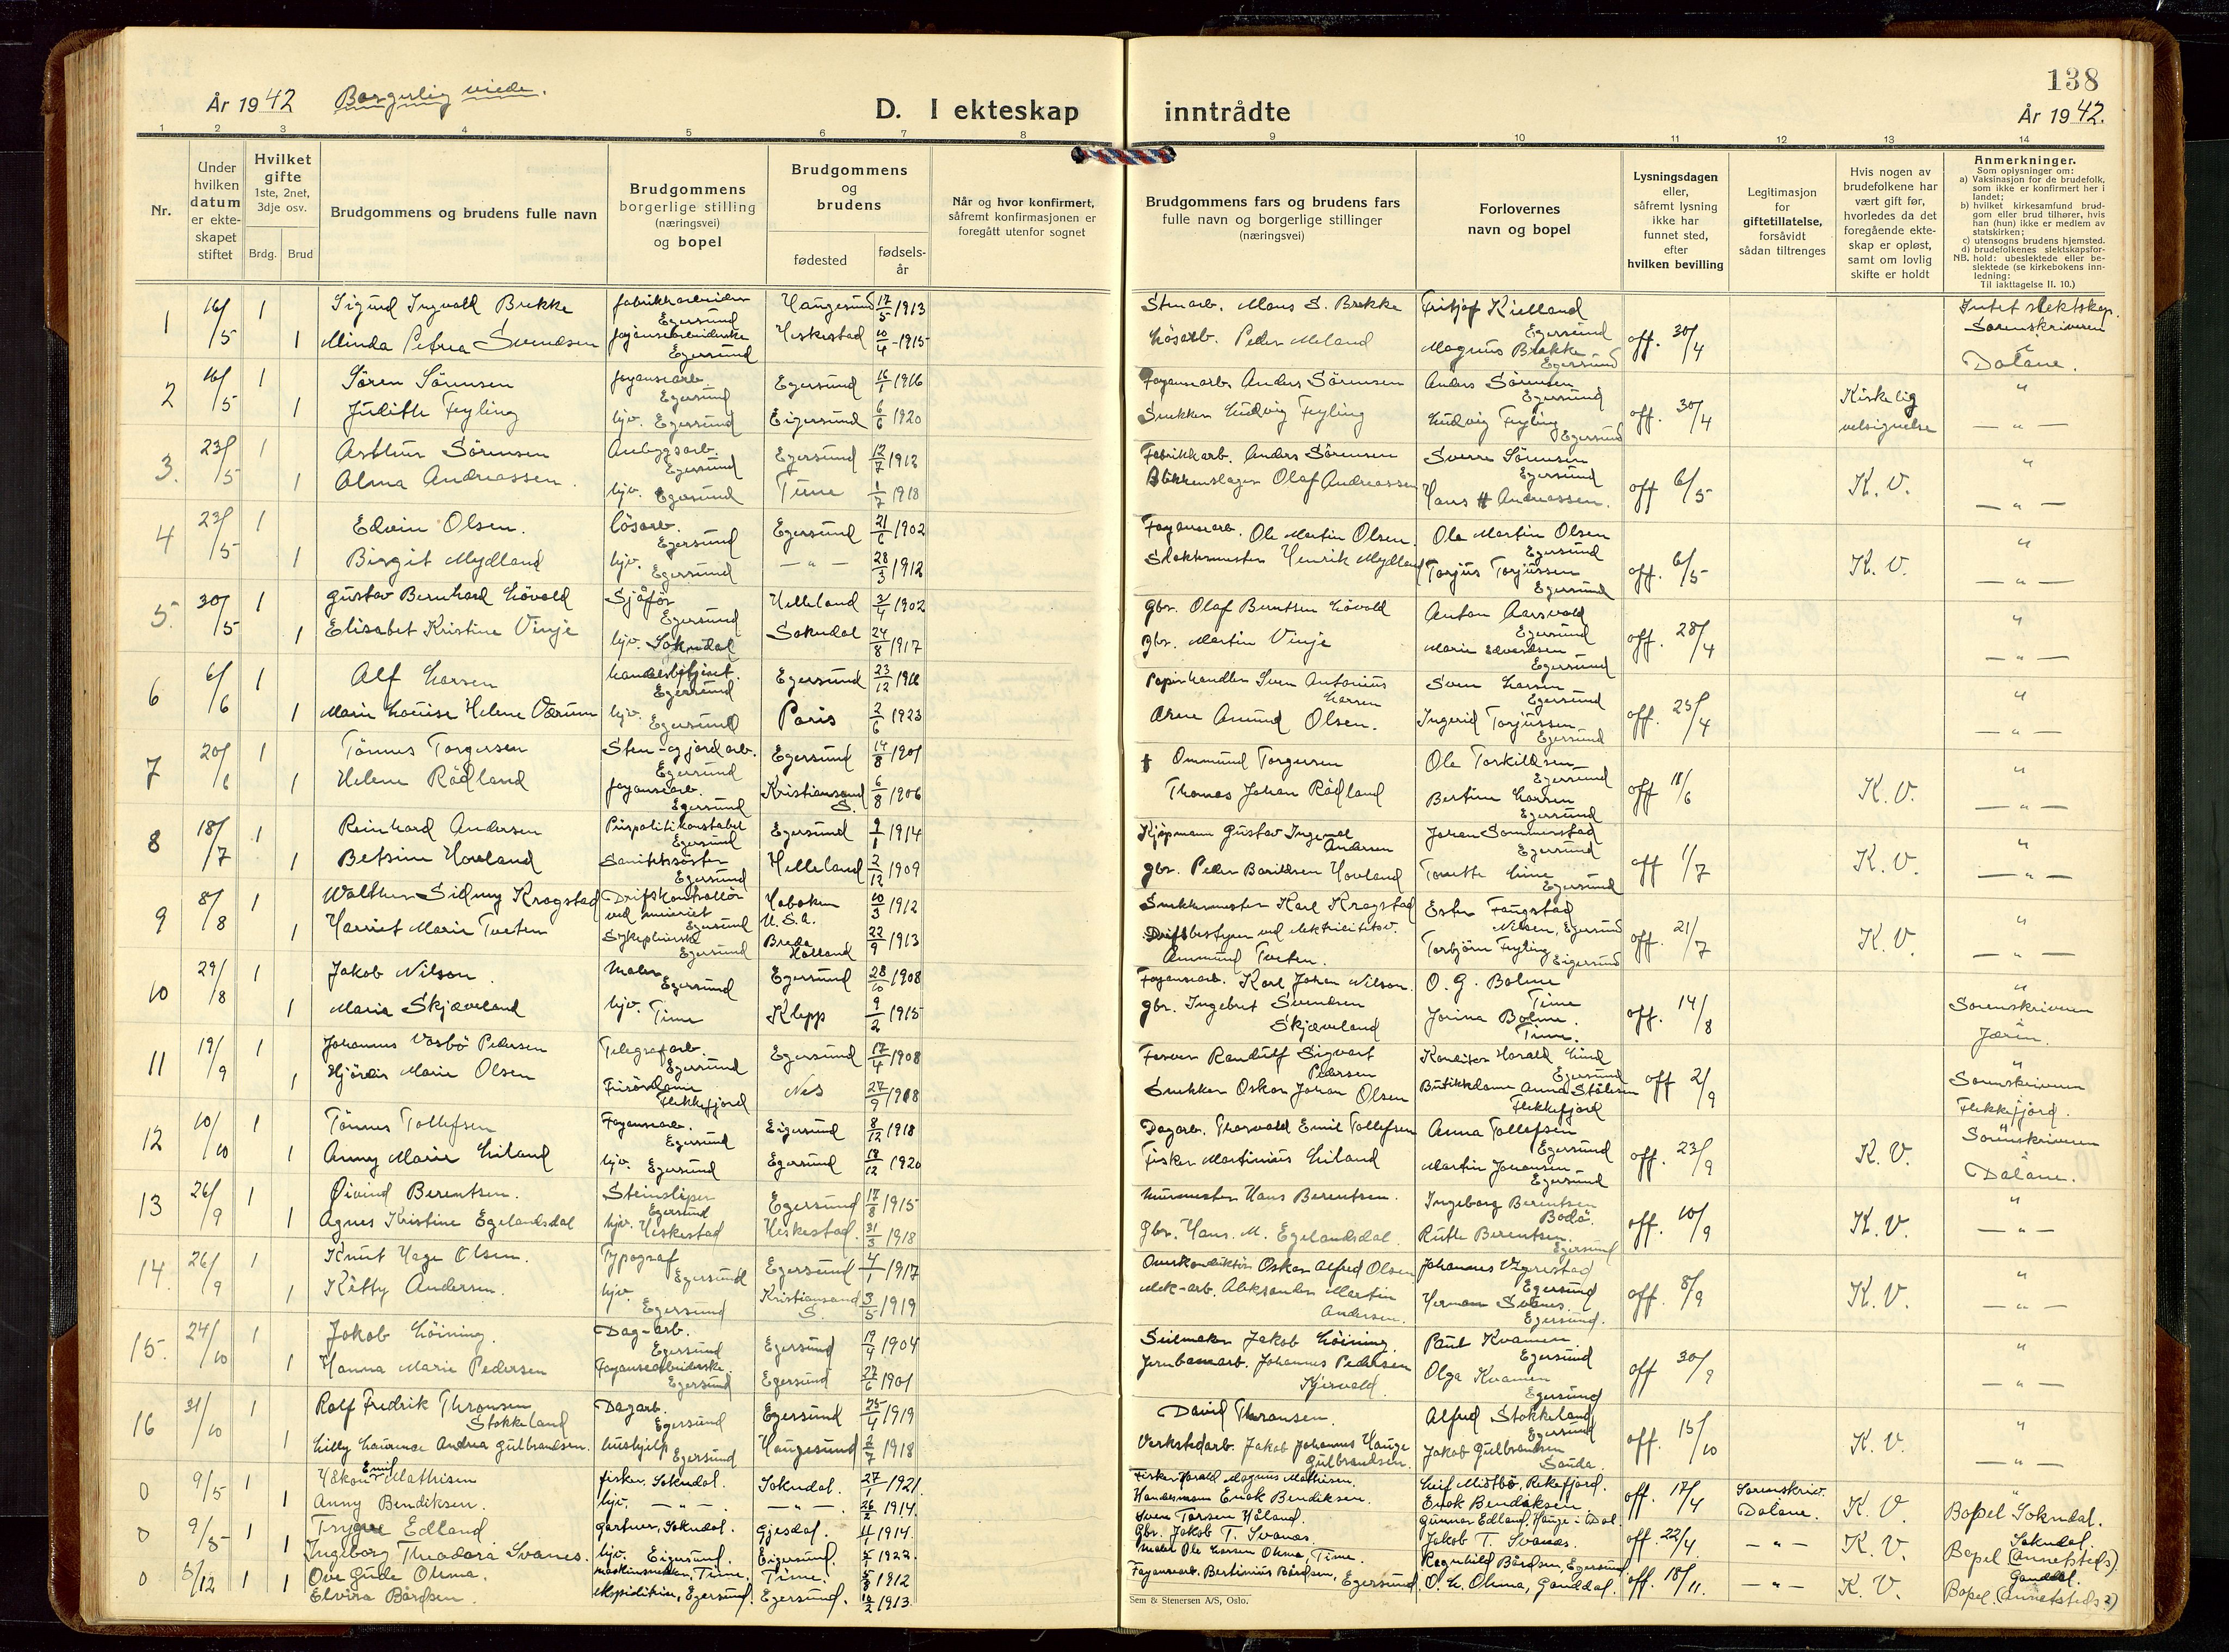 138
År 1942 Borgerlig viede.
D. I ekteskap inntrådte
År 1942.
1 2 3 4 5 6 7 8 9 10 11 12 13 14
Nr.
Under hvilken datum er ekteskapet stiftet
Hvilket gifte 1ste, 2net, 3dje osv.
Brdg. Brud
Brudgommens og brudens fulle navn
Brudgommens borgerlige stilling (næringsvei) og bopel
Brudgommens og brudens
fødested
fødselsår
Når og hvor konfirmert, såfremt konfirmasjonen er foregått utenfor sognet
Brudgommens fars og brudens fars fulle navn og borgerlige stillinger (næringsvei)
Forlovernes navn og bopel
Lysningsdagen eller, såfremt lysning ikke har funnet sted, efter hvilken bevilling
Legitimasjon for giftetillatelse, forsåvidt sådan tiltrenges
Hvis nogen av brudefolkene har vært gift før, hvorledes da det foregående ekteskap er opløst, samt om lovlig skifte er holdt
Anmerkninger.
Som oplysning om:
a) Vaksinasjon for de brudefolk, som ikke er konfirmert her i landet;
b) hvilket kirkesamfund brudgom eller brud tilhører, hvis han (hun) ikke er medlem av statskirken;
c) utensogns brudens hjemsted.
d) brudefolkenes slektskapsforhold: ubeslektede eller beslektede (se kirkebokens innledning:
NB.
Til iakttagelse II. 10.)
1 16/5 1 Sigurd Ingvald Brekke fabrikkarbeider Egersund Haugesund 17/5 1913 Stenarb. Mons S. Brekke Fritjof Kielland Egersund off. 30/4 Intet slektskap.
1 Minda Petrea Svendsen fayansearbeiderske Egersund Heskestad 10/4 1915 Løsarb. Peder Meland Magnus Brekke Egersund Sorenskriveren i Dalane.
2 16/5 1 Søren Sørensen fayansearb. Egersund Egersund 16/1 1916 Fayansearb. Anders Sørensen Anders Sørensen Egersund off. 30/4 Kirkelig velsignelse "
1 Judith Feyling hjv. Egersund Eigersund 6/6 1920 Snekker Ludvig Feyling Ludvig Feyling Egersund — " —
3. 23/5 1 Arthur Sørensen Anleggsarb. Egersund Egersund 12/7 1912 Fabrikkarb. Anders Sørensen Sverre Sørensen Egersund off 6/5 K.V. "
1 Alma Andreassen. hjv. Egersund Time 1/7 1918 Blikkenslager Olaf Andreassen Hans H Andreassen. — " —
4 23/5 1 Edvin Olsen. løsarb. Egersund Egersund 21/6 1902 Fayansearb. Ole Martin Olsen. Ole Martin Olsen Egersund off. 6/5 K.V. "
1 Birgit Mydland hjv. Egersund — " — 28/3 1912 Slaktermester Henrik Mydland Torjus Torjussen Egersund — " —
5. 30/5 1 Gustav Bernhard Løvold Sjåfør Egersund Helleland 3/4 1902 Gbr. Olaf Berntsen Løvold Anton Aarsvold Egersund off. 28/4 "
1 Elisabet Kristine Vinje hjv. Sokndal Sokndal 24/8 1917 Gbr. Martin Vinje Marie Edvardsen Egersund — " —
6 6/6 1 Alf Larsen handelsbetjent. Egersund Egersund 23/12 1916 Papirhandler Sven Antonius Larsen Sven Larsen Egersund off. 23/4 "
1 Marie Louise HeleneVærum hjv. Egersund Paris 2/6 1923 Arne Amund Olsen. Ingerid Torjussen Egersund — " —
7 20/6 1 Tønnes Torgersen Sten- og jordarb. Egersund Egersund 14/8 1901 † Ommund Torgersen Ole Torkildsen Egersund off 11/6 K.V. "
1 Helene Rødland fayansearb. Egersund Kristiansand S. 6/8 1906 Thomas Johan Rødland Bertine Larsen Egersund — " —
8 18/7 1 Reinhard Andersen Prispolitikonstabel Egersund Egersund 9/1 1914 Kjøpmann Gustav Ingemar Andersen Johan Sommerstad Egersund off 1/7 K.V. "
1 Betsine Hovland Sanitetssøster Egersund Helleland 2/12 1909 Gbr. Peder Bariksen Hovland Tonette Lime Egersund — " —
9 8/8 1 Walther Sidney Krogstad Driftskontrollør ved meieriet Egersund Hoboken U.S.A. 10/3 1912 Snekkermester Karl Krogstad Ester Faugstad Nilsen, Egersund off. 21/7 K.V. "
1 Harriet Marie Tveten Sykepleierske Egersund Breda Holland 22/9 1913 Driftsbestyrer ved elektricitetsv. Ammund Tveten. Torbjørn Feyling Eigersund — " —
10 29/8 1 Jakob Nilson Maler Egersund Egersund 28/10 1908 Fayansearb. Karl Johan Nilson. O. G. Bolme Time off. 14/8 "
1 Maria Skjæveland hjv. Time Klepp 9/2 1915 Gbr. Ingebret Svendsen Skjæveland Jorina Bolme. Time. Sorenskriveren Jæren.
11 19/9 1 Johannes Vasbø Pedersen Telegrafarb. Egersund Egersund 17/4 1908 Farver Randulf Sigvart Pedersen Konditor Harald Lund Egersund off 2/9 "
1 Hjørdis Marie Olsen Frisørdame Flekkefjord Nes 27/9 1908 Snekker Oskar Johan Olsen Butikkdame Anna Stølsen Flekkefjord Sorenskriveren Flekkefjord.
12 10/10 1 Tønnes Tollefsen Fayansearb. Egersund Eigersund 8/12 1918 Dagarb. Thorvald Emil Tollefsen Anna Tollefsen Egersund off. 23/9 K.V. Sorenskriveren
1 Anny Marie Eiland hjv. Egersund Egersund 18/12 1920 Fisker Martinius Eiland Martin Johansen Egersund Dalane.
13 26/9 1 Øivind Berentsen. Steinsliper Egersund Egersund 17/8 1915 Murmester Hans Berentsen. Ingeborg Berentsen Bodø. off. 10/9 K.V. "
1 Agnes Kristine Egelandsdal hjv. Heskestad Heskestad. 31/3 1918 Gbr. Hans. M. Egelandsdal. Ruth Berentsen. Egersund — " —
14. 26/9 1 Knut Hage Olsen. Typograf Egersund Egersund 4/1 1917 Overkonduktør Oskar Alfred Olsen Johannes Vigrestad Egersund off. 8/9 K.V. "
1 Kitty Andersen. hjv. Egersund Kristiansand S. 3/5 1919 Mek-arb. Aleksander Martin Andersen. Herman Svanes. Egersund. — " —
15. 24/10 1 Jakob Løining. Dag-arb. Egersund Egersund 19/4 1904 Seilmaker Jakob Løining. Paul Kvamen. Egersund off 30/9 "
1 Hanna Marie Pedersen Fayansearbeiderske. Egersund Egersund 27/6 1901 Jernbanearb. Johannes Pedersen Kjervold. Olga Kvamen Egersund — " —
16 31/10 1 Rolf Fredrik Thronsen Stokkeland Dagarb. Egersund Egersund 25/4 1919 David Thronsen. Alfred Stokkeland Egersund off. 15/10 K.V. "
1 Lilly Laurence Andrea Gulbrandsen. hushjelp Egersund Haugesund 2/7 1918 Verkstedarb. Jakob Johannes Hauge Gulbrandsen. Jakob Gulbrandsen Sauda. — " —
0 9/5 1 Håkon Emil Mathisen fisker, Sokndal. Sokndal. 27/1 1921. Fisker Harald Magnus Mathisen. Leif Midtbø, Rekefjord. off. 17/4 Sorenskriv. Dalane. K.V. "
1 Anny Bendiksen. hjv. — " — — " — 26/2 1914. Handelsmann Enok Bendiksen. Enok Bendiksen. Bopel Sokndal.
0 9/5 1 Trygve Edland gartner, Sokndal. Gjesdal. 4/4 1914. Sven Torsen Håland. Gunnar Edland, Hauge i Dal. off. 22/4. — " — K.V. Sokndal.
1 Ingeborg Theodora Svanes. hjv. Eigersund. Eigersund. 5/2 1922. Gbr. Jakob T. Svanes. Jakob T. Svanes. Bopel (annetsteds).
0 5/12 1 1 Ove Gude Ohma. maskinsnekker, Time. Time. 5/8 1912 Maler Ole Larsen Ohma, Time. Ragnhild Bårdsen, Egersund off. 18/11. — " — K.V. Ganddal.
Elvira Bårdsen. ekspeditrise, Egersund. Egersund. 12/2 1913. Fayansearb. Bertinius Bårdsen, Egersund O. L. Ohma, Ganddal. Bopel. (annetsteds?)
Sem & Stenersen A/S, Oslo.